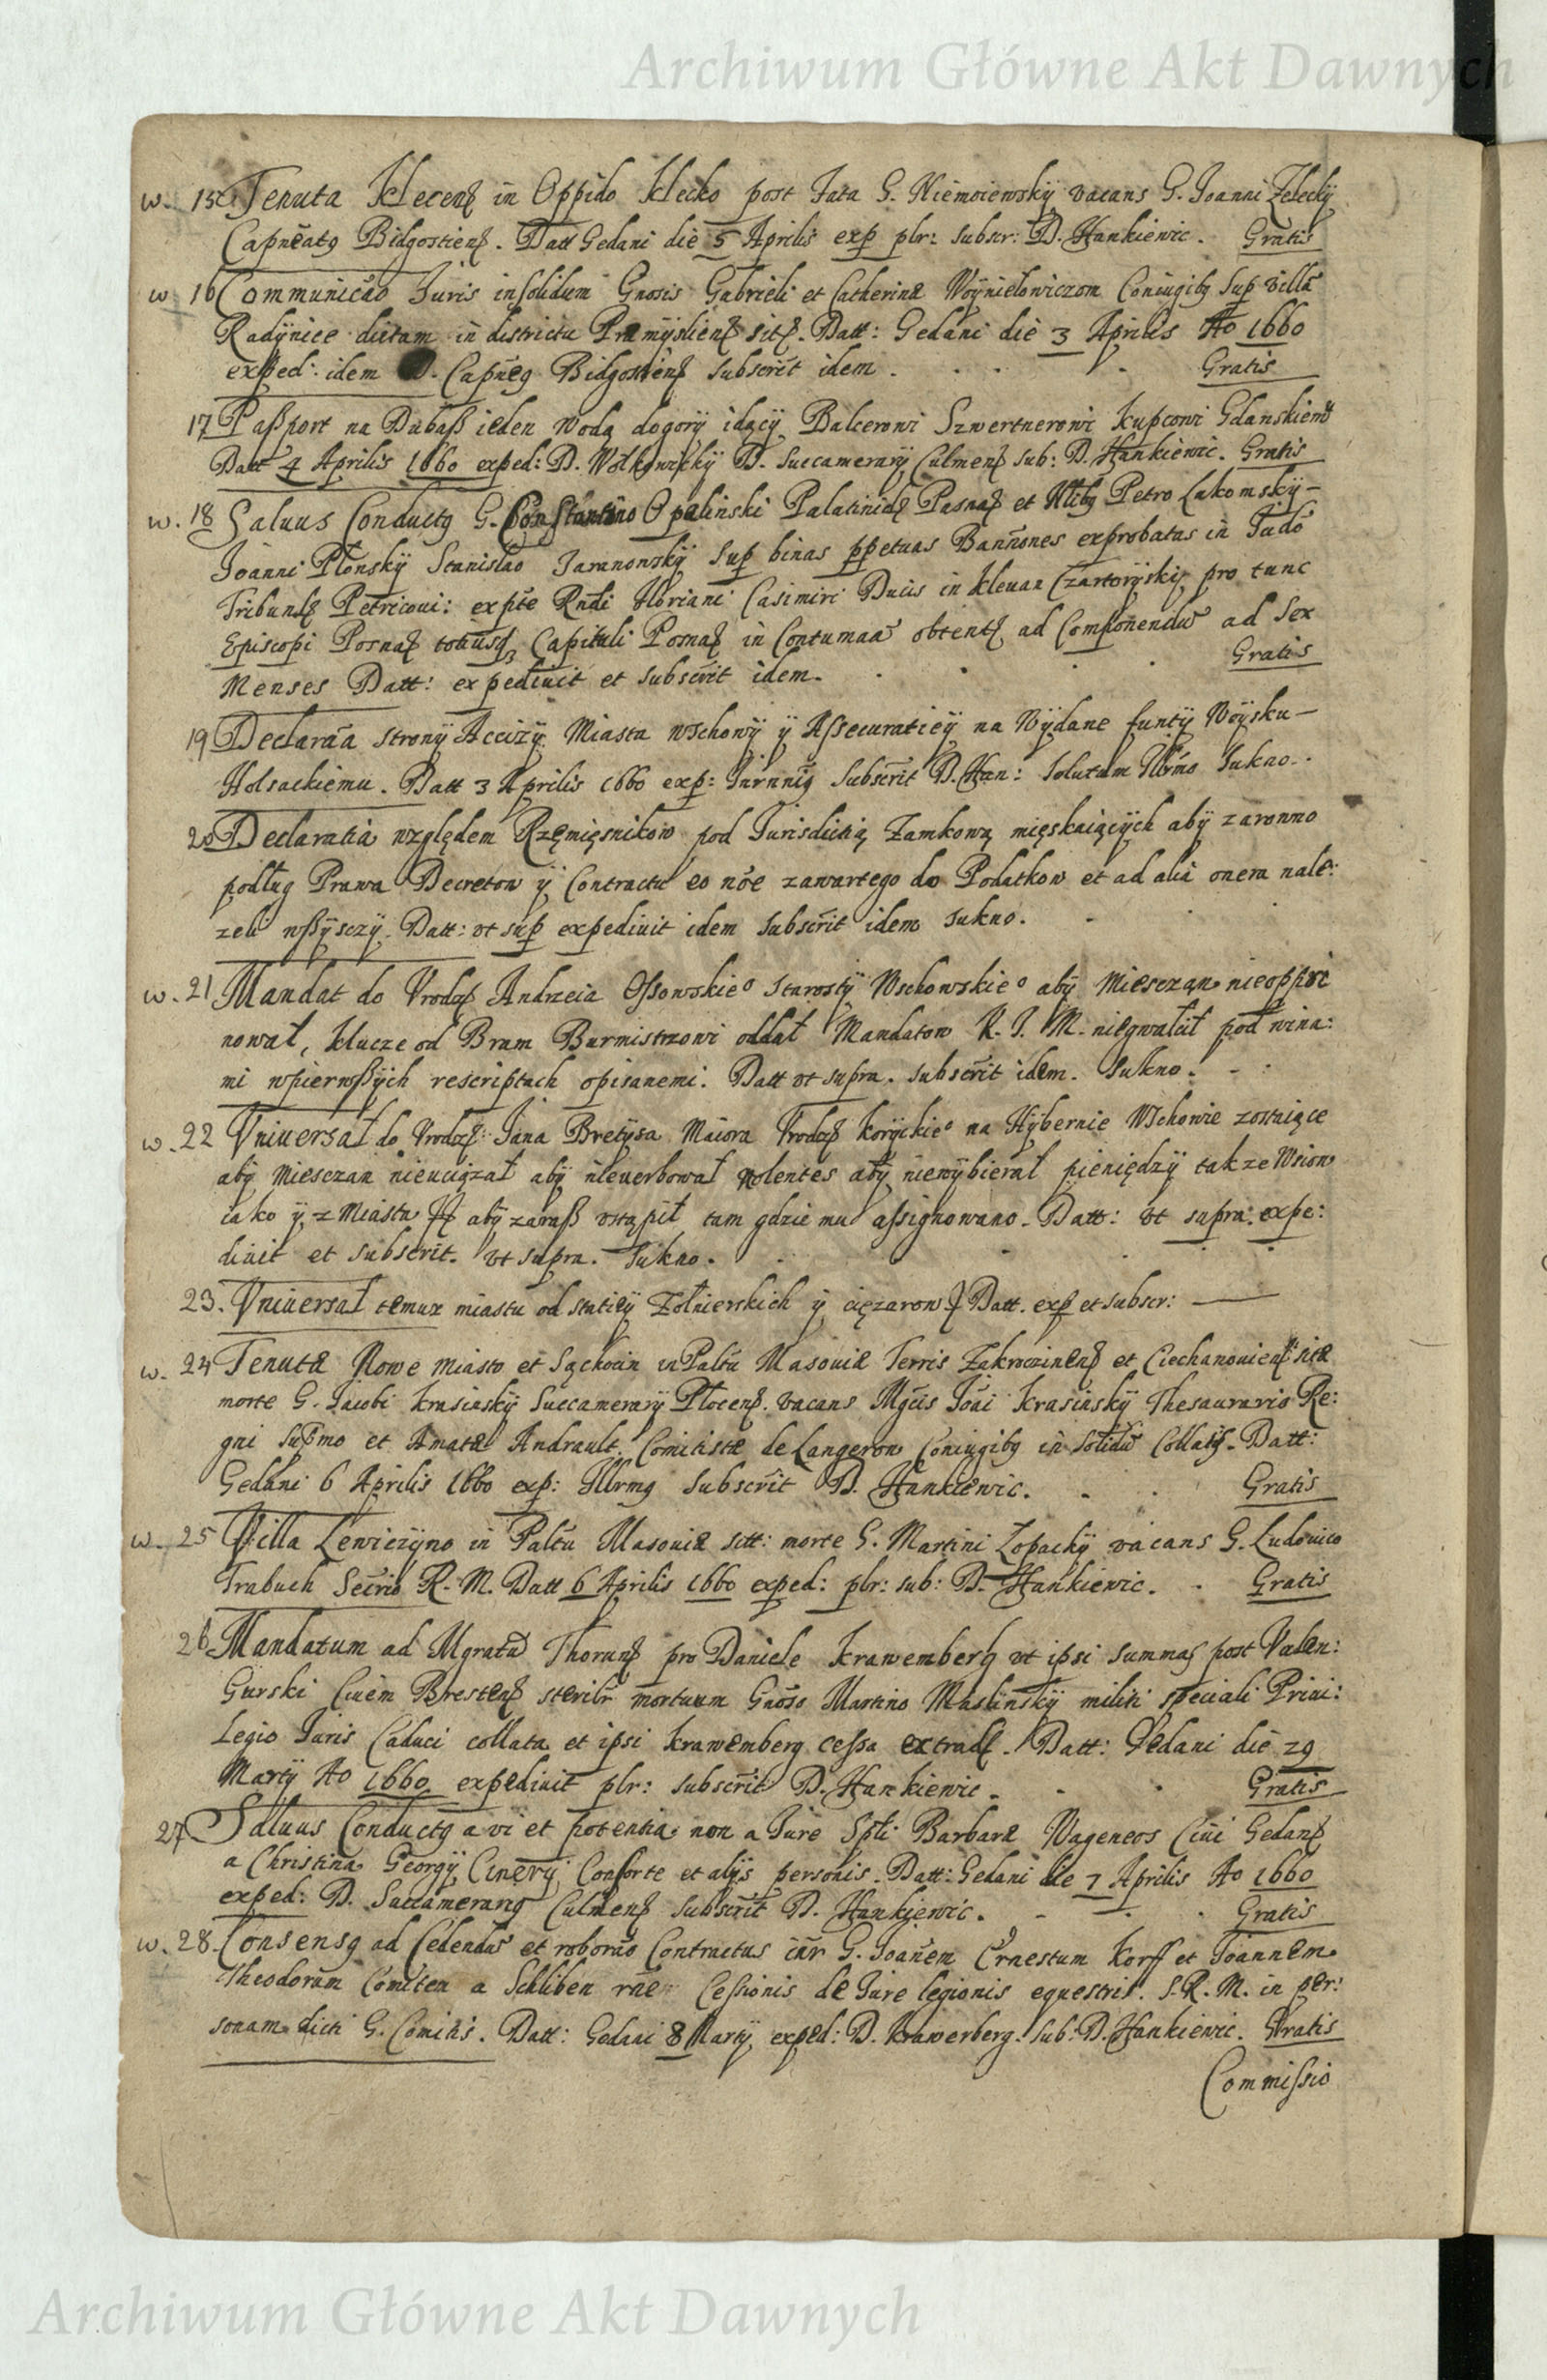 Archiwum Główne Akt Dawnych
w. 15 Tenuta Klecenß in Oppido Klecko post Fata G. Niemoiewskÿ vacans G. Joanni Zeleckÿ
Capneatq Bidgostienß. Datt Gedani die 5 Aprilis exp plr: subscr: D. Hankiewic. Gratis
w 16 Communicão Juris insolidum Gnosis Gabrieli et Catherinæ Woÿniełowiczom Coniugibq sup villã
Radÿnice dictam in districtu Præmÿslienß sitß. Datt: Gedani die 3 Aprilis Ao 1660
exped: idem D. Capneq Bidgostienß subscrit idem. Gratis
17 Paßport na Dubaß ieden wodą dogorÿ idącÿ Balcerowi Szwertnerowi kupcowi Gdanskiemũ
Datt 4 Aprilis 1660 exped: D. Wołkowickÿ D. Succamerarÿ Culmenß sub: D. Hankiewic. Gratis
w. 18 Saluus Conductq G. Constantino Opalinski Palatinidę Posnaß et Nlibq Petro Lakomskÿ –
Joanni Płonskÿ Stanislao Jaranowskÿ sup binas ppetuas Bannones exprobatas in Judõ
Tribunlß Petricoui: expte Rndi Floriani Casimiri Ducis in Klewan Czartorÿskiß pro tunc
Episcopi Posnaß totiusq Capituli Posnaß in Contumaã obtentß ad Componendũ ad sex
Menses Datt: expediuit et subscrit idem. Gratis
19 Declarãa stronÿ Accizÿ Miasta Wschowÿ ÿ Assecuratieÿ na Wÿdane funtÿ Woÿsku –
Holsackiemu. Datt 3 Aprilis 1660 exp: subscrit D. Han: solutum Sukno.
20 Declaratia względem Rzęmięsnikow pod Jurisdictią Zamkową mięskaiącÿch abÿ zarowno
podług Prawa Decretow ÿ Contractu eo nõe zawartego do Podatkow et ad alia onera nale:
zeli wßÿsczÿ. Datt: vt sup expediuit idem subscrit idem sukno.
w. 21 Mandat do Vrodzß Andrzeia Ossowskieº Starostÿ Wschowskieº abÿ Miesczan nieoppri
nował, klucze od Bram Burmistrzowi oddał Mandatow K. J. M. niegwałcił pod wina:
mi wpierwßÿch rescriptach opisanemi. Datt vt supra. subscrit idem. Sukno.
w. 22 Vniuersał do Vrodzß Jana Bretÿsa Maiora Vrodzß Korÿckieº na Hÿbernie Wschowie zostaiące
abÿ Miesczan nieuciązał abÿ niewerbował nolentes abÿ niewÿbierał pieniędzÿ takze Wsiow
iako ÿ z Miasta abÿ zaraß vstąpił tam gdzie mu assignowano. Datt: vt supra: expe:
diuit et subscrit. vt supra. Sukno.
23. Vniuersał temuz miastu od statieÿ Zołnierskich ÿ ciężarow Datt. exp et subscr:
w. 24 Tenutæ Nowe Miasto et Sąchocin in Paltu Masouiæ Terris Zakroczinenß et Ciechanouienß sitæ
morte G. Jacobi Krasinskÿ Succamerarÿ Płocenß. vacans Mgcis Joãi Krasinskÿ Thesaurario Re:
gni Supmo et Amatæ Andrault Comitissæ de Langeron Coniugibq in solidũ Collatß. Datt:
Gedani 6 Aprilis 1660 exp: Illrmq subscrit D. Hankiewic. Gratis
w. 25 Villa Lewiczÿno in Paltu Masouiæ sitt: morte G. Martini Łopackÿ vacans G. Ludouico
Trabuch Secrio R. M. Datt 6 Aprilis 1660 exped: plr: sub: D. Hankiewic. Gratis
26 Mandatum ad Mgratũ Thorunß pro Daniele Krawemberg vt ipsi summas post Valen:
Gurski Ciuem Brestenß sterilr mortuum Gnoso Martino Maslinskÿ militi speciali Priui:
legio Juris Caduci collata et ipsi Krawemberg cessa extradß. Datt: Gedani die 29
Martÿ Ao 1660 expediuit plr: subscrit D. Hankiewic. Gratis
27 Saluus Conductq a vi et potentia non a Jure Spli Barbaræ Wageneos Ciui Gedanß
a Christina Georgÿ Cinerÿ Consorte et alÿs personis. Datt: Gedani die 7 Aprilis Ao 1660
exped: D. Succamerarq Culmenß subscrit D. Hankiewic. Gratis
w. 28. Consensq ad Cedendũ et roborão Contractus inr G. Joanem Ernestum Korff et Joannem
Theodorum Comitem a Schliben rne Cessionis de Jure legionis equestris. S. R. M. in per:
sonam dicti G. Comitis. Datt: Gedani 8 Martÿ exped: D. Krawerberg. sub: D. Hankiewic. Gratis
Commissio
Archiwum Główne Akt Dawnych